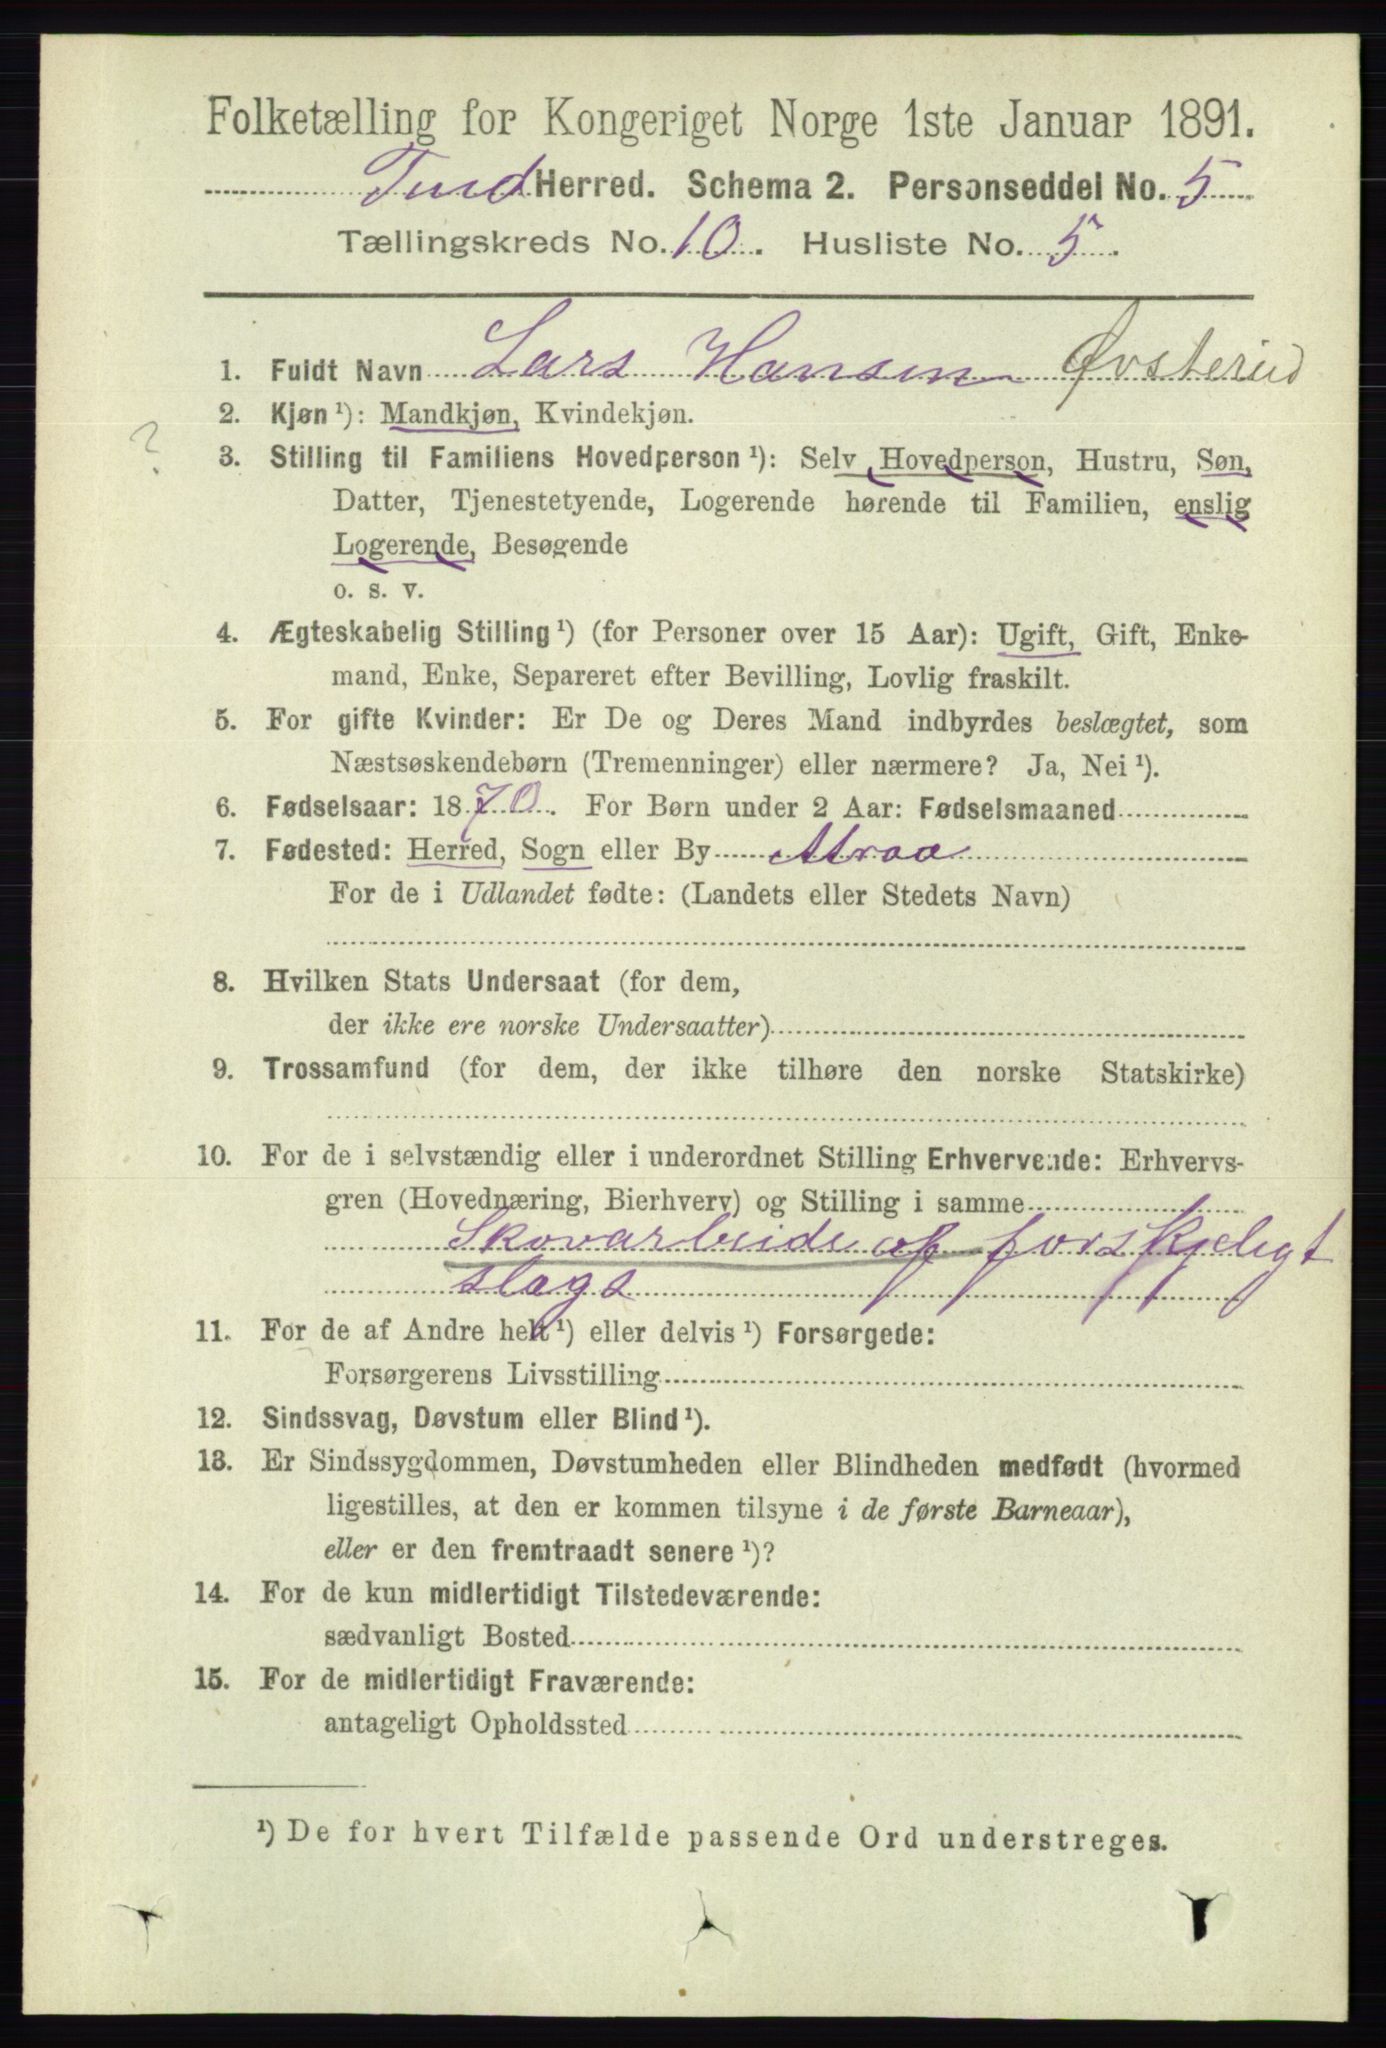 Folketælling for Kongeriget Norge 1ste Januar 1891.
Tind Herred. Schema 2. Personseddel No. 5
Tællingskreds No. 10. Husliste No. 5.
1. Fuldt Navn Lars Hansen Øvsterud
2. Kjøn ¹): Mandkjøn, Kvindekjøn.
?
3. Stilling til Familiens Hovedperson ¹): Selv Hovedperson, Hustru, Søn,
Datter, Tjenestetyende, Logerende hørende til Familien, enslig
Logerende, Besøgende
o. s. v.
4. Ægteskabelig Stilling ¹) (for Personer over 15 Aar): Ugift, Gift, Enke-
mand, Enke, Separeret efter Bevilling, Lovlig fraskilt.
5. For gifte Kvinder: Er De og Deres Mand indbyrdes beslægtet, som
Næstsøskendebørn (Tremenninger) eller nærmere? Ja, Nei ¹).
6. Fødselsaar: 1870. For Børn under 2 Aar: Fødselsmaaned
7. Fødested: Herred, Sogn eller By Atraa
For de i Udlandet fødte: (Landets eller Stedets Navn)
8. Hvilken Stats Undersaat (for dem,
der ikke ere norske Undersaatter)
9. Trossamfund (for dem, der ikke tilhøre den norske Statskirke)
10. For de i selvstændig eller i underordnet Stilling Erhvervende: Erhvervs-
gren (Hovednæring, Bierhverv) og Stilling i samme
Skovarbeide af forskjeligt
slags
11. For de af Andre helt ¹) eller delvis ¹) Forsørgede:
Forsørgerens Livsstilling
12. Sindssvag, Døvstum eller Blind ¹).
13. Er Sindssygdommen, Døvstumheden eller Blindheden medfødt (hvormed
ligestilles, at den er kommen tilsyne i de første Barneaar),
eller er den fremtraadt senere ¹)?
14. For de kun midlertidigt Tilstedeværende:
sædvanligt Bosted
15. For de midlertidigt Fraværende:
antageligt Opholdssted
¹) De for hvert Tilfælde passende Ord understreges.